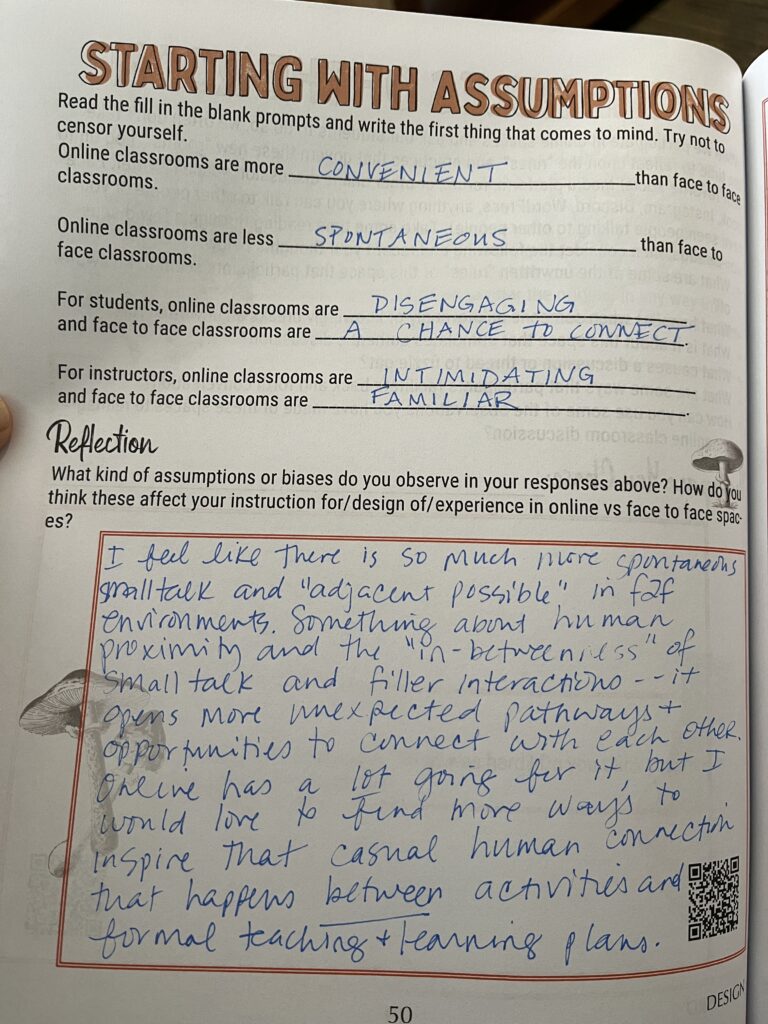 STARTING WITH ASSUMPTIONS
Read the fill in the blank prompts and write the first thing that comes to mind. Try not to
censor yourself.
Online classrooms are more CONVENIENT than face to face
classrooms.
Online classrooms are less SPONTANEOUS than face to
face classrooms.
For students, online classrooms are DISENGAGING
and face to face classrooms are A CHANCE TO CONNECT.
For instructors, online classrooms are INTIMIDATING
and face to face classrooms are FAMILIAR.
Reflection
What kind of assumptions or biases do you observe in your responses above? How do you
think these affect your instruction for/design of/experience in online vs face to face spac-
es?
I feel like there is so much more spontaneous
smalltalk and "adjacent possible" in f2f
environments. Something about human
proximity and the "in-betweenness" of
small talk and filler interactions -- it
opens more unexpected pathways +
opportunities to connect with each other.
Online has a lot going for it, but I
would love to find more ways to
inspire that casual human connection
that happens between activities and
formal teaching + learning plans.
50
DESIGN